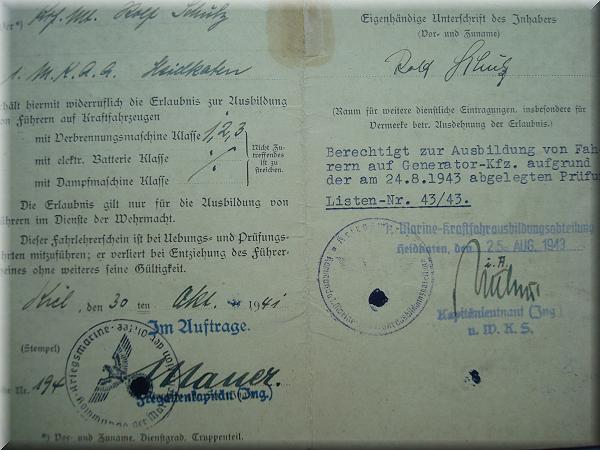 Rolf Schulz
1. M.K.A.A. Heidkaten
hält hiermit widerruflich die Erlaubnis zur Ausbildung
von Führern auf Kraftfahrzeugen
mit Verbrennungsmaschine Klasse 1,2,3
mit elektr. Batterie Klasse
mit Dampfmaschine Klasse
Nicht Zu-
treffendes
ist zu
streichen.
Die Erlaubnis gilt nur für die Ausbildung von
ührern im Dienste der Wehrmacht.
Dieser Fahrlehrerschein ist bei Uebungs- und Prüfungs-
ahrten mitzuführen; er verliert bei Entziehung des Führer-
eines ohne weiteres seine Gültigkeit.
Kiel, den 30 ten Okt. 1941
Im Auftrage.
(Stempel)
Fregattenkapitän (Ing.)
Nr. 194
*) Vor- und Zuname, Dienstgrad, Truppenteil.
Eigenhändige Unterschrift des Inhabers
(Vor- und Zuname)
Rolf Schulz
(Raum für weitere dienstliche Eintragungen, insbesondere für
Vermerke betr. Ausdehnung der Erlaubnis.)
Berechtigt zur Ausbildung von Fah
rern auf Generator-Kfz. aufgrund
der am 24.8.1943 abgelegten Prüfu
Listen-Nr. 43/43.
Marine-Kraftfahrausbildungsabteilung
Heidkaten, den 25. AUG. 1943
i.A.
Kapitänleutnant (Ing)
u. W. K. S.